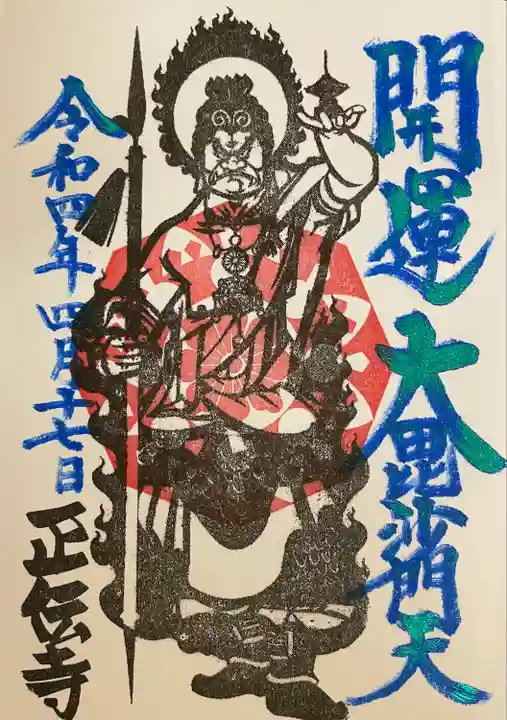 開運大毘沙門天
令和四年四月十七日
正伝寺